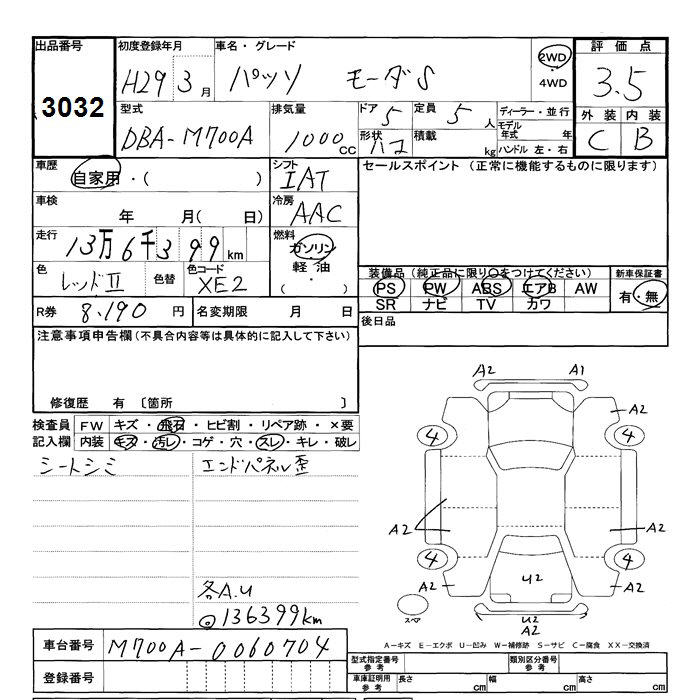 出品番号 初度登録年月 車名・グレード 2WD 評価点
3032 H29 3月 パッソ モーダS ・4WD 3.5
型式 排気量 ドア 定員 ディーラー・並行 外装 内装
DBA-M700A 1000cc 5 5人 モデル年式 年 C B
形状 ハコ 積載 kg ハンドル 左・右
車歴 シフト セールスポイント (正常に機能するものに限ります)
自家用・( ) IAT
車検 冷房
年 月( 日) AAC
走行 燃料
13万6千399km ガソリン
色 色替 色コード ・軽油
レッドⅡ XE2 ( )
装備品(純正品に限り○をつけてください) 新車保証書
PS PW ABS エアB AW 有・無
SR ナビ TV カワ
R券 8,190円 名変期限 月 日 後日品
注意事項申告欄(不具合内容等は具体的に記入して下さい)
修復歴 有 〔箇所 〕
検査員 FW キズ・飛石・ヒビ割・リペア跡・×要
記入欄 内装 キズ・汚レ・コゲ・穴・スレ・キレ・破レ
シートシミ エンドパネル歪
各A.U
◎136399km
A2 A1
A2
4 4
A2 A2
4 4
A2 U2 A2
スペア U2
A2
車台番号 M700A-0060704
A-キズ E-エクボ U-凹み W-補修跡 S-サビ C-腐食 XX-交換済
型式指定番号 参考 類別区分番号 参考
登録番号 車庫証明用 参考 長さ cm 幅 cm 高さ cm